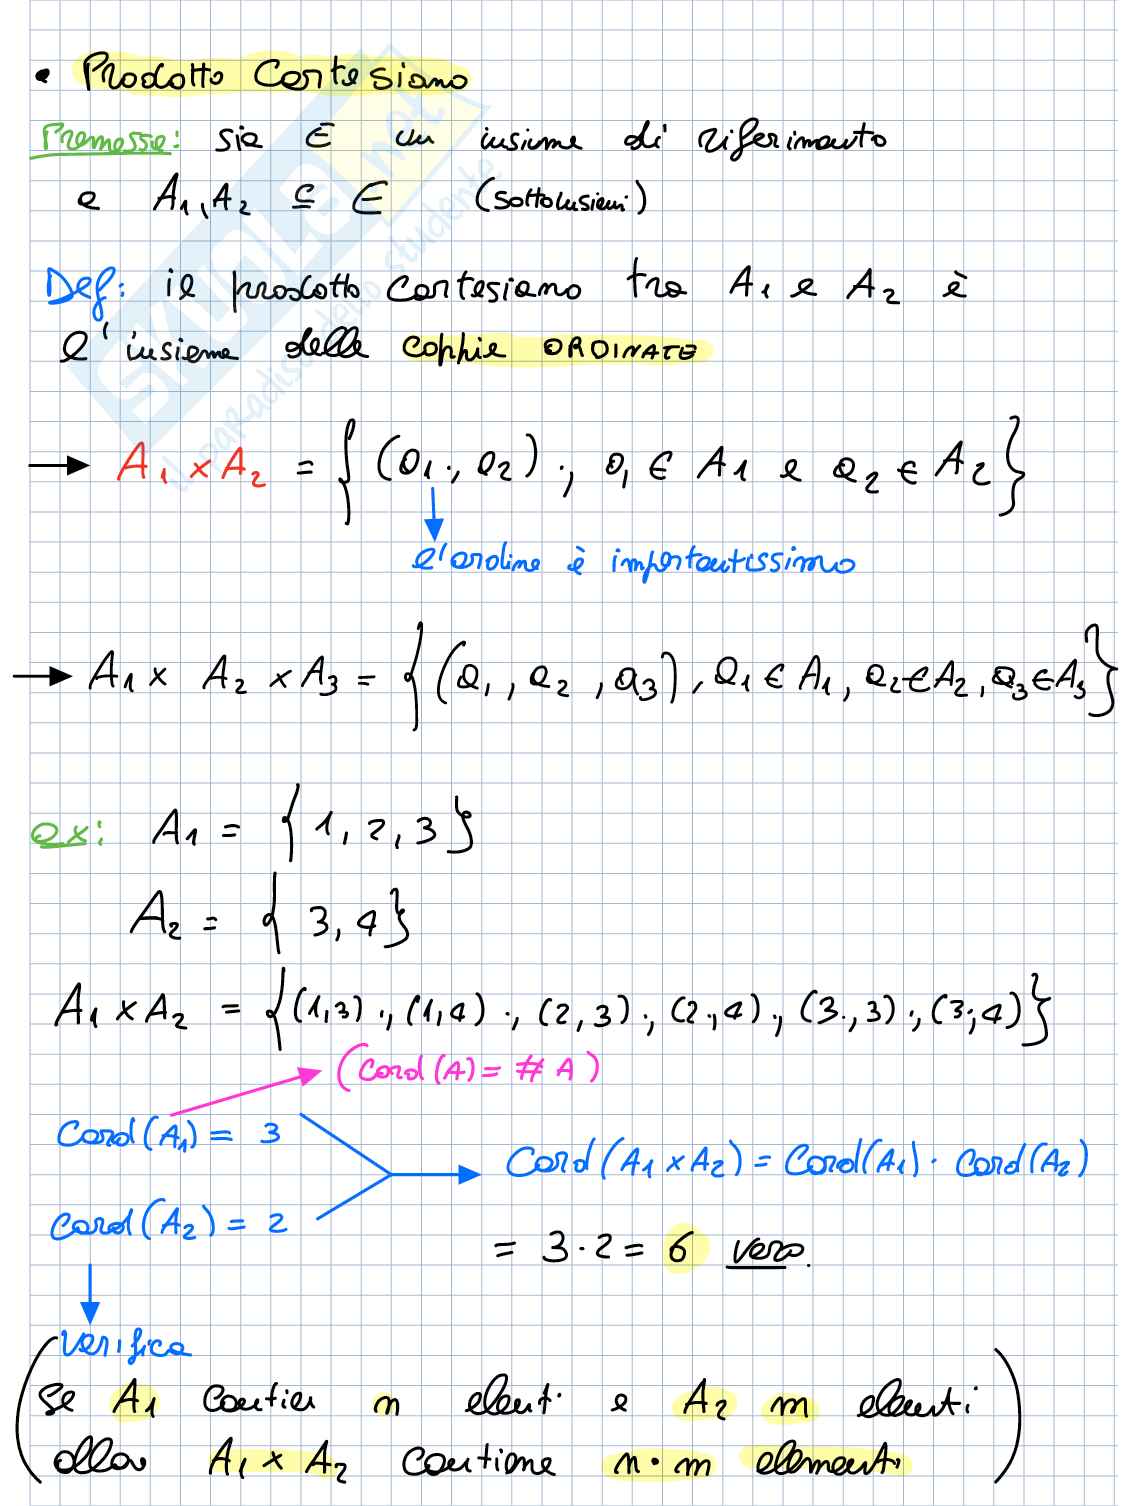 • Prodotto Cartesiano
Premesse: sia E un insieme di riferimento
e A₁, A₂ ⊆ E (sottoinsiemi)
Def: il prodotto cartesiano tra A₁ e A₂ è
l'insieme delle coppie ORDINATE
→ A₁ × A₂ = {(a₁ ; a₂) ; a₁ ∈ A₁ e a₂ ∈ A₂}
l'ordine è importantissimo
→ A₁ × A₂ × A₃ = {(a₁, a₂, a₃), a₁ ∈ A₁, a₂ ∈ A₂, a₃ ∈ A₃}
ex: A₁ = {1, 2, 3}
A₂ = {3, 4}
A₁ × A₂ = {(1,3) ; (1,4) ; (2,3) ; (2;4) ; (3;3) ; (3;4)}
(Card(A) = # A)
Card(A₁) = 3
Card(A₂) = 2
Card(A₁ × A₂) = Card(A₁) · Card(A₂)
= 3 · 2 = 6 vero.
verifica
(se A₁ contien n elementi e A₂ m elementi
allora A₁ × A₂ contiene n · m elementi)
SKUOLA.net
il paradiso dello studente